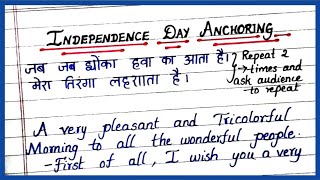 INDEPENDENCE DAY ANCHORING
जब जब झोका हवा का आता है।
मेरा तिरंगा लहराता है।
Repeat 2
→ times and
ask audience
to repeat
A very pleasant and Tricolorful
Morning to all the wonderful people.
-First of all, I wish you a very